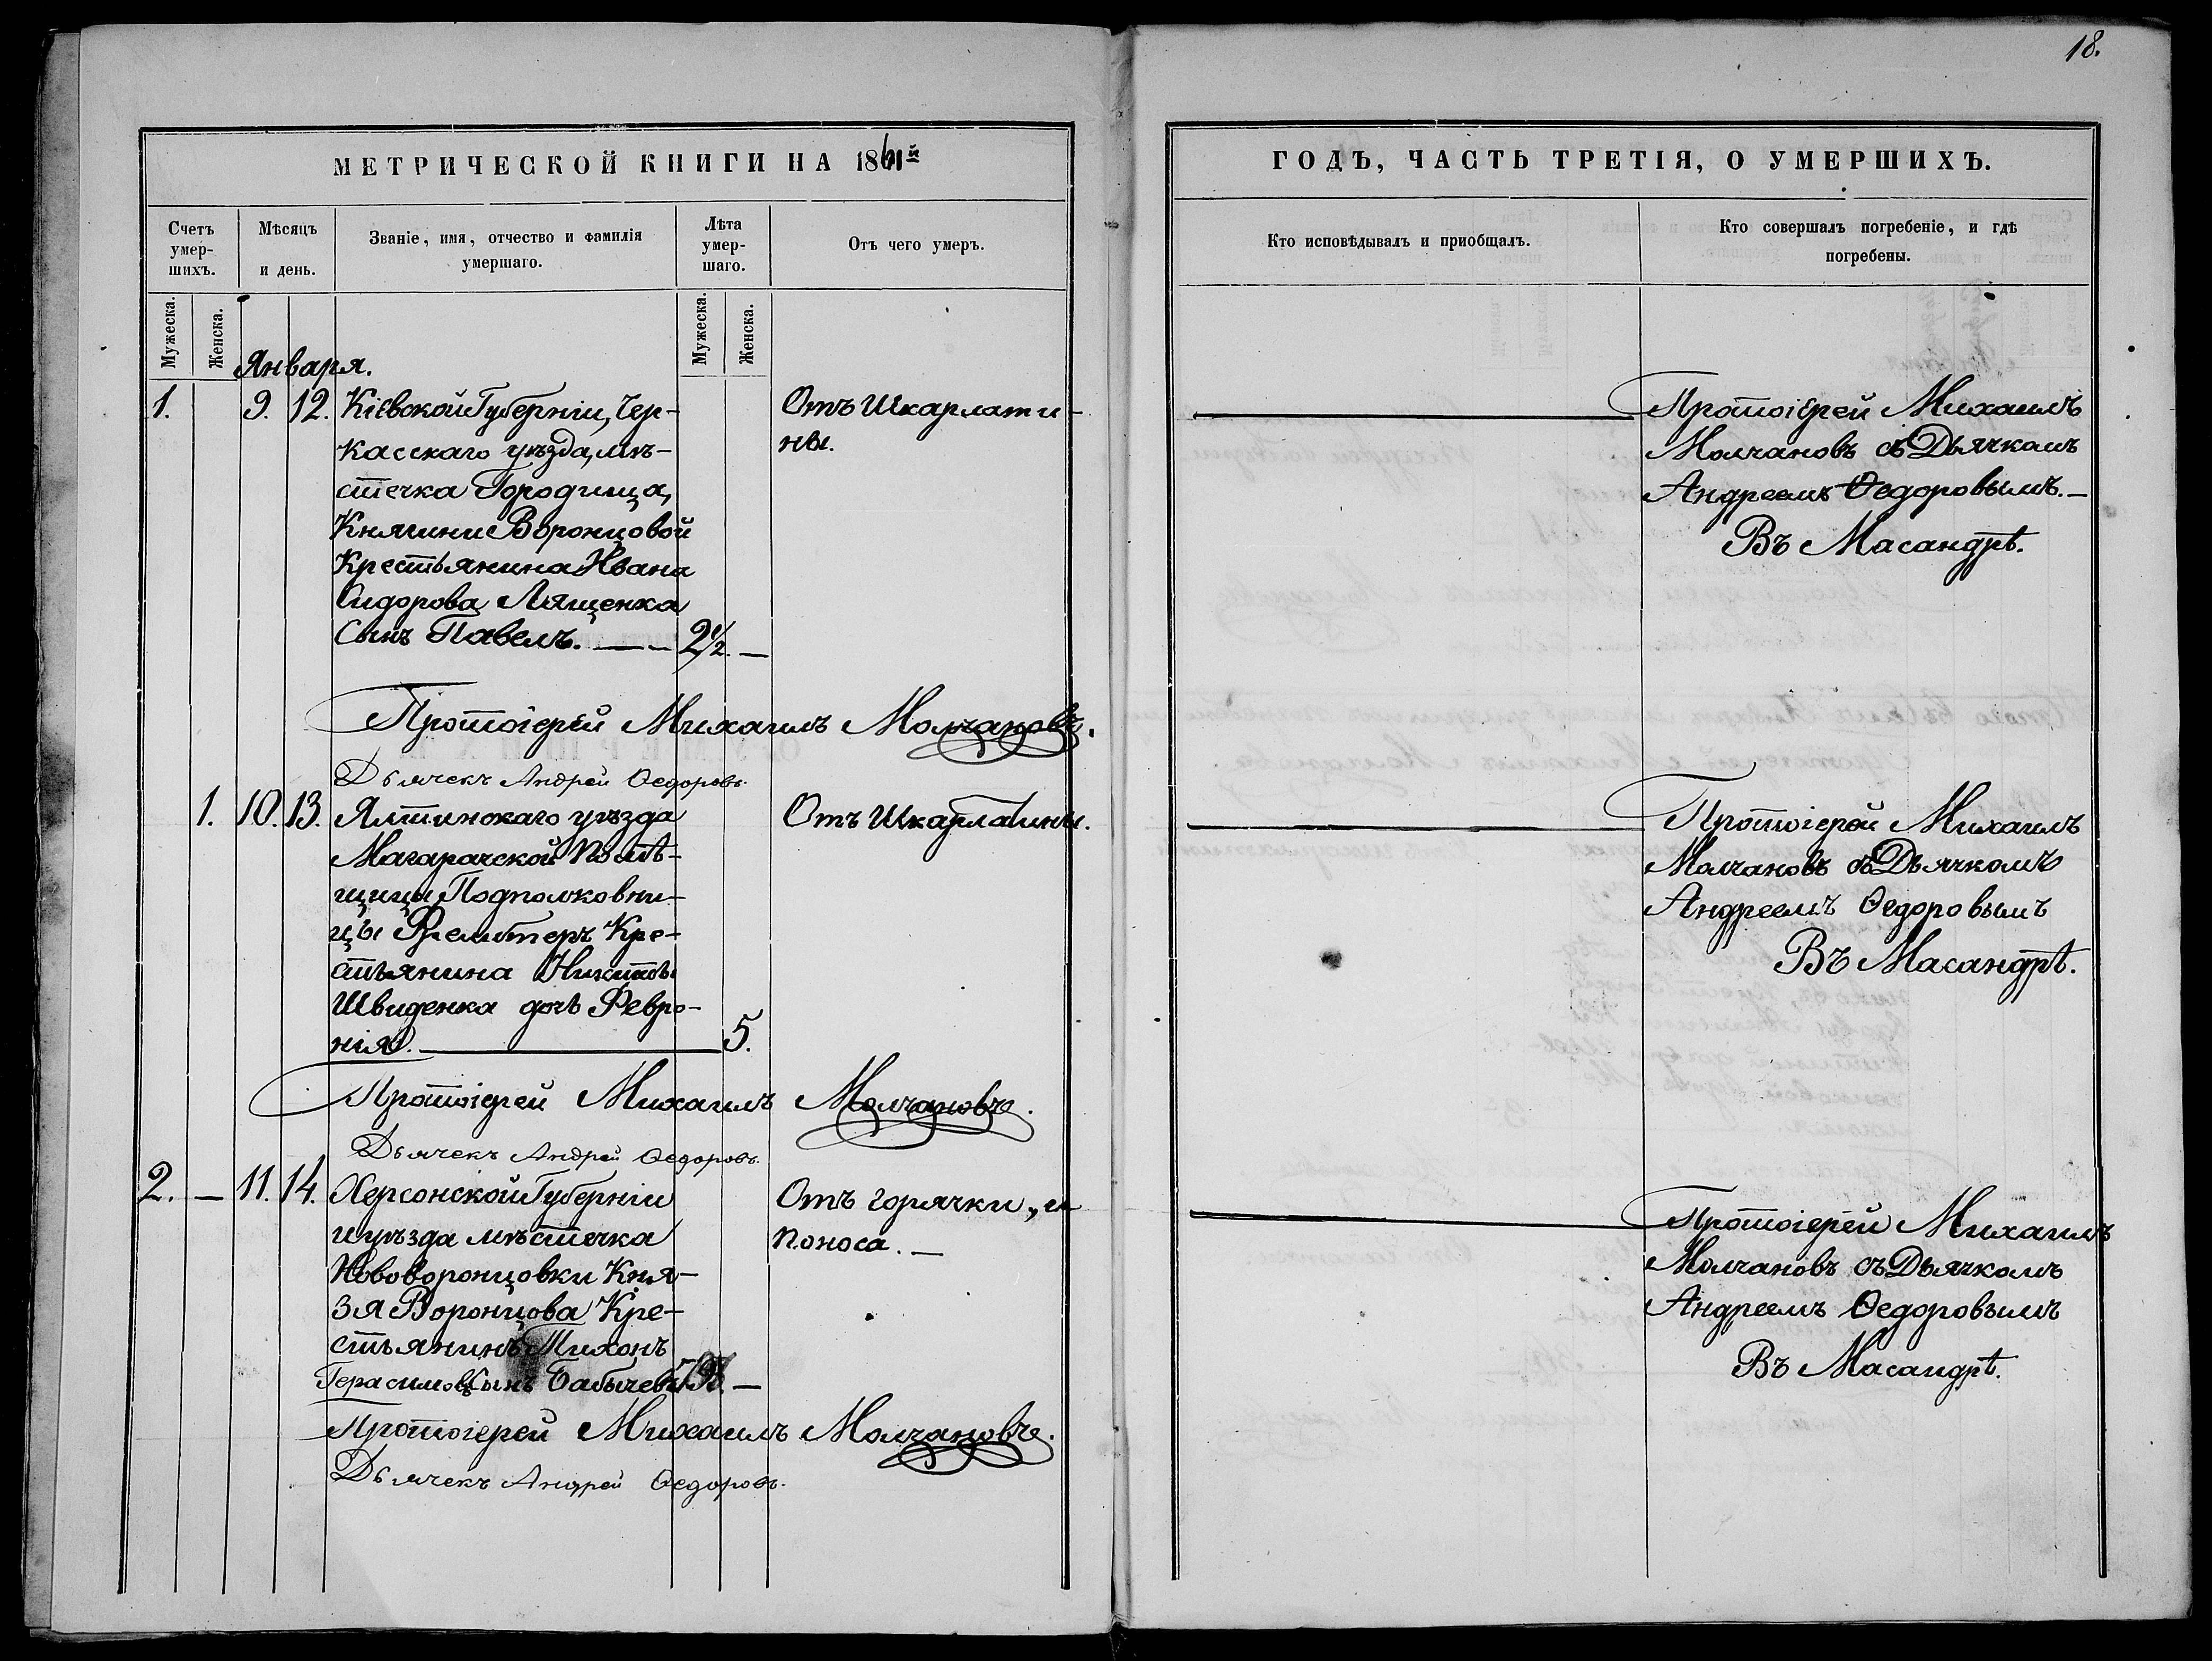 18.
МЕТРИЧЕСКОЙ КНИГИ НА 1861й
Счетъ умер-шихъ.
Мѣсяцъ и день.
Званіе, имя, отчество и фамилія умершаго.
Лѣта умер-шаго.
Отъ чего умеръ.
Мужеска.
Женска.
Мужеска.
Женска.
Января.
1. 9. 12. Кіевской Губерніи, Чер- Отъ Шкарлати-
касскаго уѣзда, мѣ- ны.
стечка Городища,
Княгини Воронцовой
Крестьянина Ивана
Сидорова Лященка
Сынъ Павелъ. — 2 1/2. —
Протоіерей Михаилъ Молчановъ.
Дьячекъ Андрей Ѳедоровъ.
1. 10. 13. Ялтинскаго уѣзда Отъ Шкарлатины.
Магарачской Помѣ-
щицы Подполковни-
цы Кре-
стьянина Никиты
Швиденка дочь Февро-
нія. — 5.
Протоіерей Михаилъ Молчановъ.
Дьячекъ Андрей Ѳедоровъ.
2. — 11. 14. Херсонской Губерніи Отъ горячки, и
и уѣзда мѣстечка поноса. —
Нововоронцовки Кня-
зя Воронцова Кре-
стьянинъ Тихонъ
Герасимовъ Сынъ Бабычевъ —
Протоіерей Михаилъ Молчановъ.
Дьячекъ Андрей Ѳедоровъ.
ГОДЪ, ЧАСТЬ ТРЕТІЯ, О УМЕРШИХЪ.
Кто исповѣдывалъ и приобщалъ.
Кто совершалъ погребеніе, и гдѣ погребены.
Протоіерей Михаилъ
Молчановъ съ Дьячкомъ
Андреемъ Ѳедоровымъ. —
Въ Масандрѣ.
Протоіерей Михаилъ
Молчановъ съ Дьячкомъ
Андреемъ Ѳедоровымъ
Въ Масандрѣ.
Протоіерей Михаилъ
Молчановъ съ Дьячкомъ
Андреемъ Ѳедоровымъ
Въ Масандрѣ.